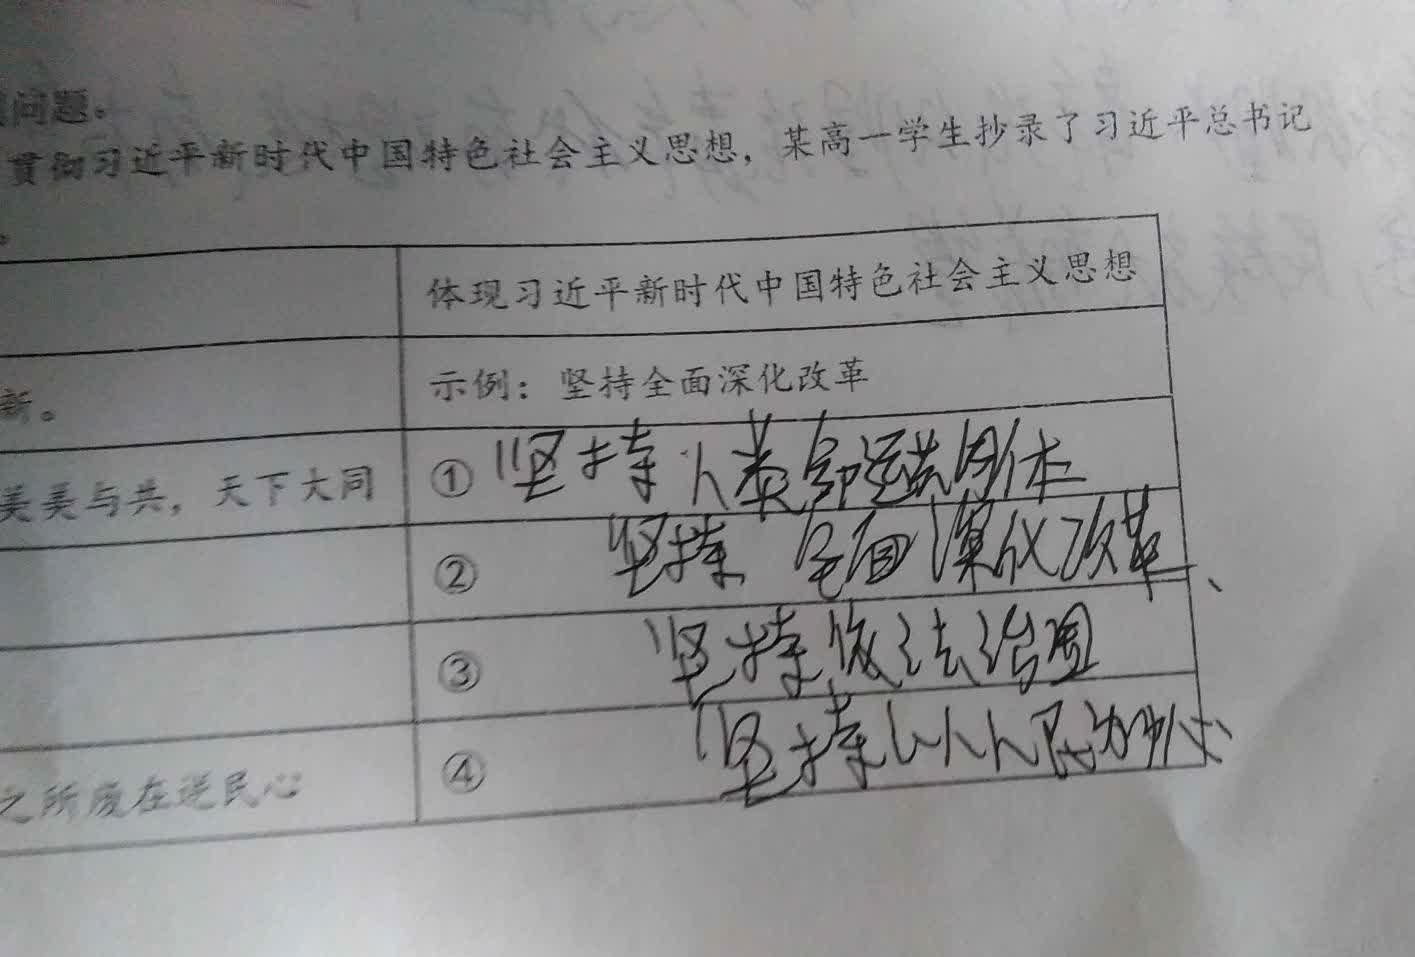 问题。
贯彻习近平新时代中国特色社会主义思想，某高一学生抄录了习近平总书记
。
体现习近平新时代中国特色社会主义思想
新。
示例：坚持全面深化改革
美美与共，天下大同
① 坚持人类命运共同体
② 坚持全面深化改革、
③ 坚持依法治国
之所废在逆民心
④ 坚持以人民为中心、